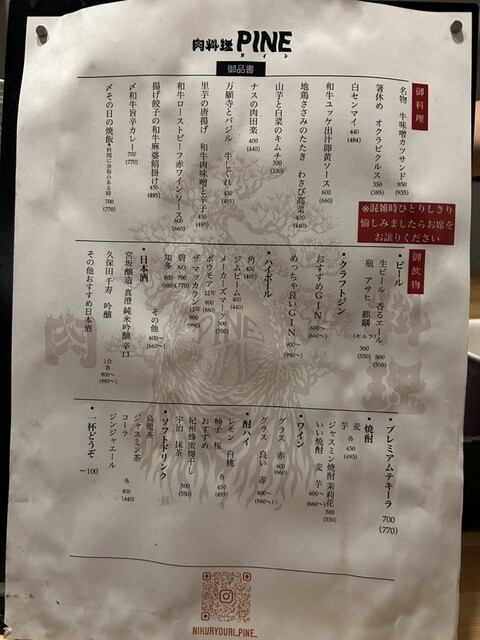 肉料理 PINE
パイン
御品書
御料理
名物 牛味噌カツサンド 850 (935)
箸休め オクラピクルス 350 (385)
白センマイ 440 (484)
和牛ユッケ出汁卵黄ソース 600 (660)
地鶏ささみのたたき わさび高菜 400 (440)
山芋と白菜のキムチ 300 (330)
ナスの肉田楽 400 (440)
万願寺とバジル 牛しぐれ 450 (495)
里芋の唐揚げ 和牛肉味噌と辛子 450 (495)
和牛ローストビーフ赤ワインソース 600 (660)
揚げ餃子の和牛麻婆餡掛け 450 (495)
〆和牛旨辛カレー 700 (770)
〆その日の焼飯 700 (770)
※混雑時ひとりしきり
愉しみましたらお席を
お譲りください
御飲物
・ビール
生ビール 香るエール 500 (550)
瓶 アサヒ 麒麟 (セルフ) 500 (550)
・クラフトジン
おすすめGIN 600〜 (660〜)
めっちゃ良いGIN 900〜 (990〜)
・ハイボール
角 450 (495)
ジムビーム 400 (440)
メーカーズマーク 500 (550)
ボウモア 12年 800 (880)
ザ マッカラン 12年 900 (990)
碧AO 700 (770)
知多
その他 600〜 (660〜)
・日本酒
宮坂醸造 真澄 純米吟醸 辛口
久保田 千寿 吟醸
その他おすすめ日本酒
1合 各 800〜 (880〜)
・プレミアムテキーラ 700 (770)
・焼酎
麦
芋 各 450 (495)
ジャスミン焼酎 茉莉花 500 (550)
いい焼酎 麦 芋 600〜 (660〜)
・ワイン
グラス 赤 600 (660)
グラス 良い 赤 800〜 (880〜)
・酎ハイ
レモン 白桃
柚子 桜 各 450 (495)
おすすめ
紀州蜂蜜梅干し
宇治 抹茶 500 (550)
・ソフトドリンク
烏龍茶
ジャスミン茶
コーラ
ジンジャエール 各 400 (440)
・一杯どうぞ ー100
NIKURYOURI_PINE_